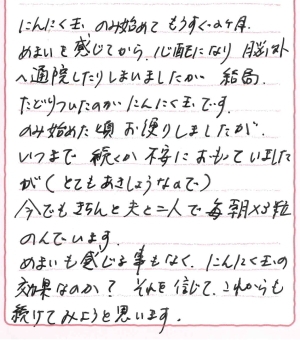 にんにく玉 のみ始めて もうすぐ2ヶ月.
めまいを感じてから、心配になり 脳外
へ通院したりしまいましたが 結局.
たどりついたのが にんにく玉です.
のみ始めた頃 お便りしましたが.
いつまで 続くか 不安に おもっていました
が(とてもあきしょうなので)
今でも きちんと 夫と二人で 毎朝×3粒
のんでいます.
めまいも感じる事もなく、にんにく玉の
効果なのか? それを信じて、これからも
続けてみようと思います.